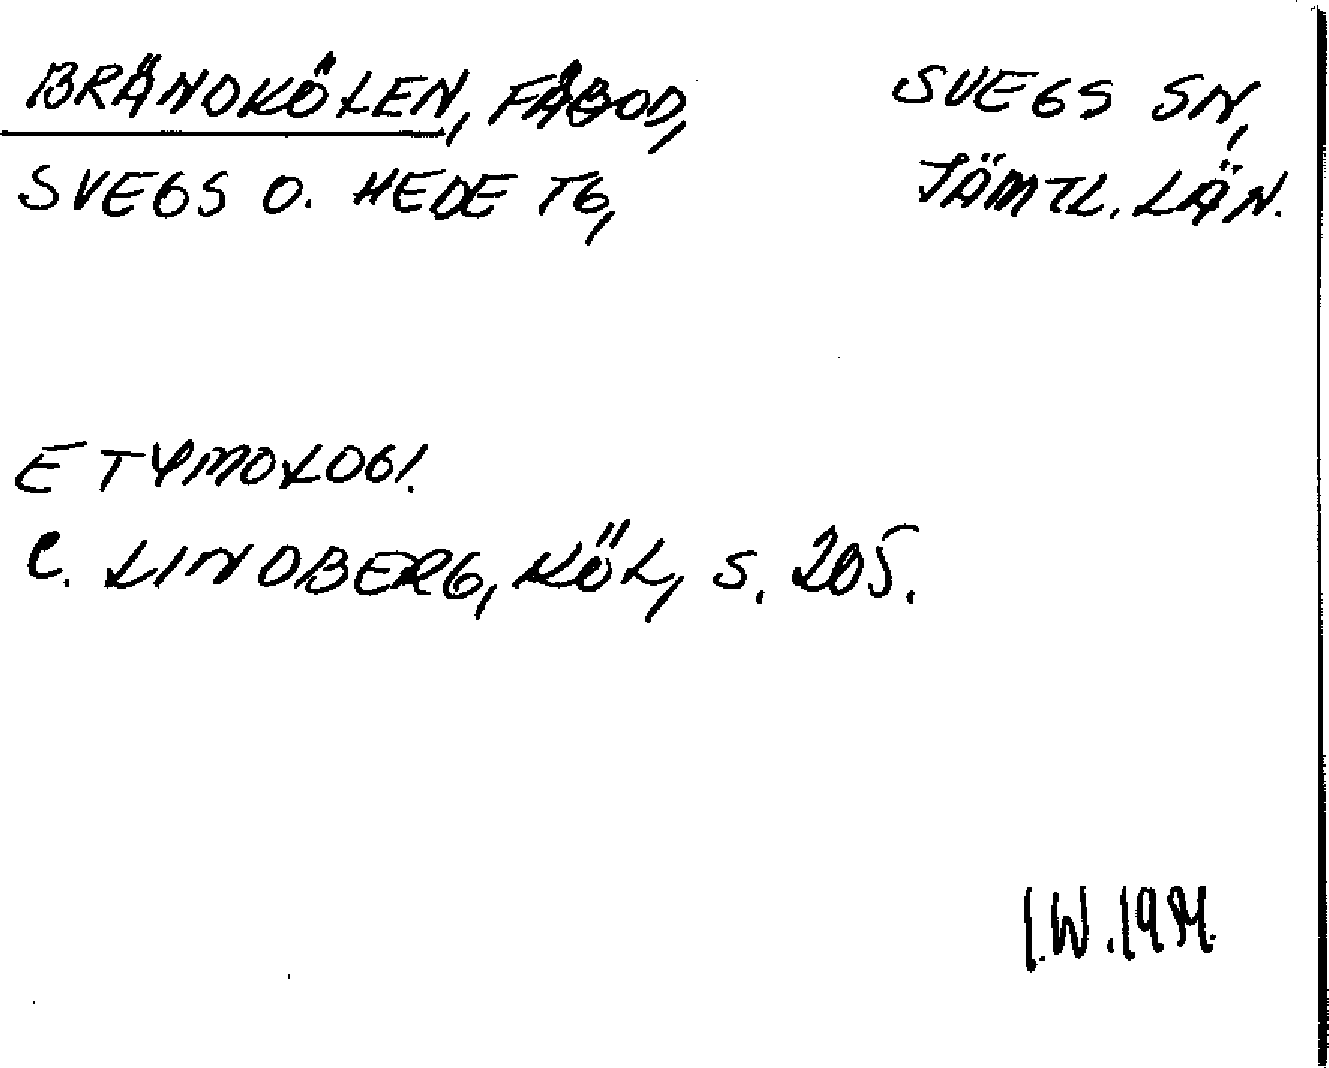 BRÄNDKÖLEN, FÄBOD, SVEGS SN,
SVEGS O. HEDE TG, JÄMTL. LÄN.
ETYMOLOGI.
C. LINDBERG, KÖL, S. 205.
I.W.